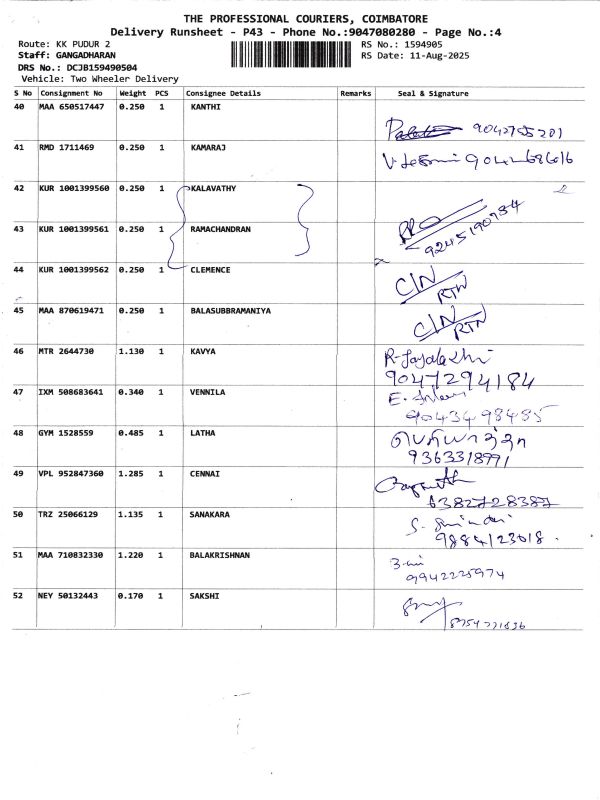 THE PROFESSIONAL COURIERS, COIMBATORE
Delivery Runsheet - P43 - Phone No.:9047080280 - Page No.:4
Route: KK PUDUR 2 RS No.: 1594905
Staff: GANGADHARAN RS Date: 11-Aug-2025
DRS No.: DCJB159490504
Vehicle: Two Wheeler Delivery
S No Consignment No Weight PCS Consignee Details Remarks Seal & Signature
40 MAA 650517447 0.250 1 KANTHI
41 RMD 1711469 0.250 1 KAMARAJ
42 KUR 1001399560 0.250 1 KALAVATHY
43 KUR 1001399561 0.250 1 RAMACHANDRAN
9245190934
44 KUR 1001399562 0.250 1 CLEMENCE C/N RTN
45 MAA 870619471 0.250 1 BALASUBBRAMANIYA C/N RTN
46 MTR 2644730 1.130 1 KAVYA
9047294184
47 IXM 508683641 0.340 1 VENNILA
9043498435
48 GYM 1528559 0.485 1 LATHA
9363318991
49 VPL 952847360 1.285 1 CENNAI
6382728387
50 TRZ 25066129 1.135 1 SANAKARA
9884123018
51 MAA 710832330 1.220 1 BALAKRISHNAN
9942225974
52 NEY 50132443 0.170 1 SAKSHI